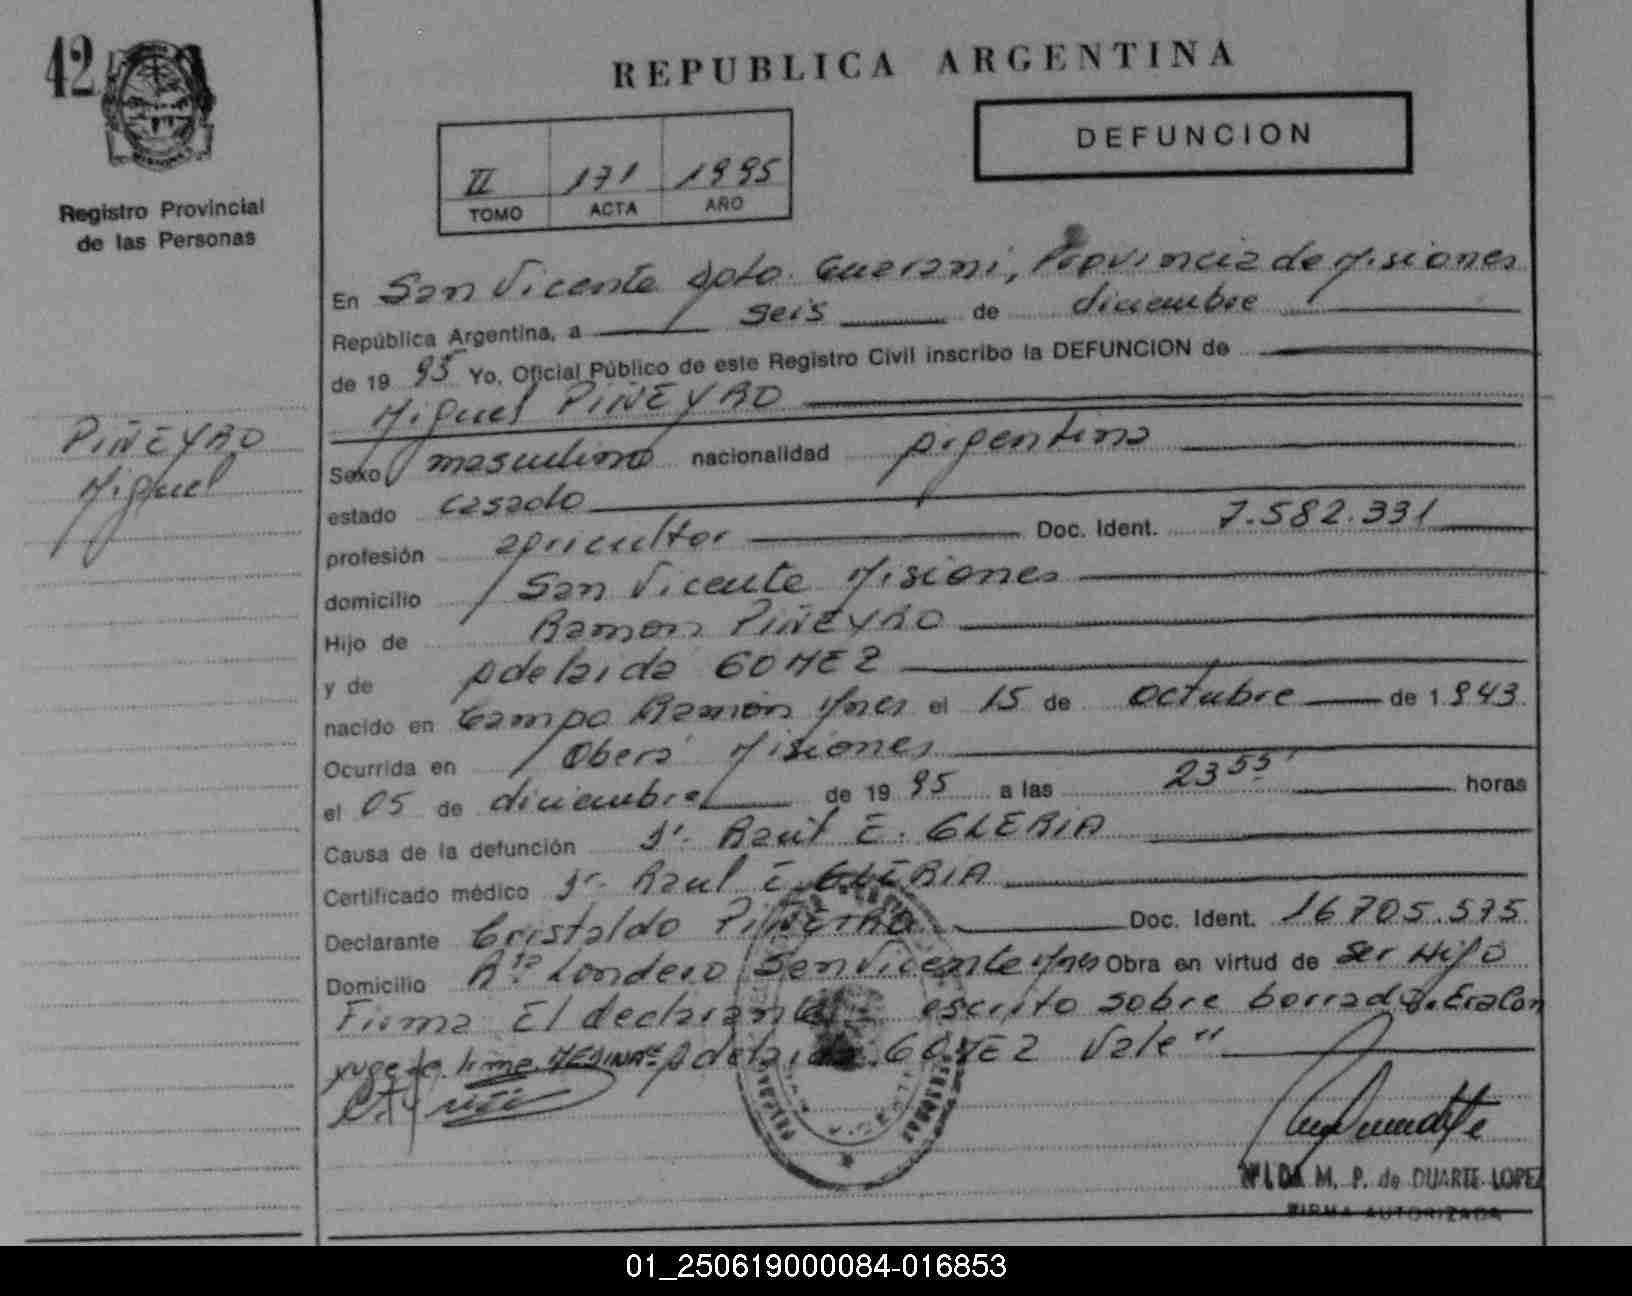 42
Registro Provincial
de las Personas
PIÑEYRO
Miguel
REPUBLICA ARGENTINA
DEFUNCION
II 171 1995
TOMO ACTA AÑO
En San Vicente Dpto. Guarani, Provincia de Misiones
República Argentina, a seis de diciembre
de 1995 Yo, Oficial Público de este Registro Civil inscribo la DEFUNCION de
Miguel PIÑEYRO
Sexo masculino nacionalidad Argentina
estado casado
profesión agricultor Doc. Ident. 7.582.331
domicilio San Vicente Misiones
Hijo de Ramon PIÑEYRO
y de Adelaida GOMEZ
nacido en Campo Ramón Mnes el 15 de Octubre de 1.943.
Ocurrida en Oberá Misiones
el 05 de diciembre de 1995 a las 23 55' horas
Causa de la defunción Dr. Raúl E. GLERIA
Certificado médico Dr. Raul E. GLERIA
Declarante Cristaldo PIÑEYRO Doc. Ident. 16.705.575
Domicilio Aº Londero San Vicente Mnes Obra en virtud de Ser Hijo
Firma El declarante escrito sobre borrado. Era Con
yuge de Irma MEDINA Adelaida GOMEZ Vale"
M. P. de DUARTE LOPEZ
FIRMA AUTORIZADA
01_250619000084-016853